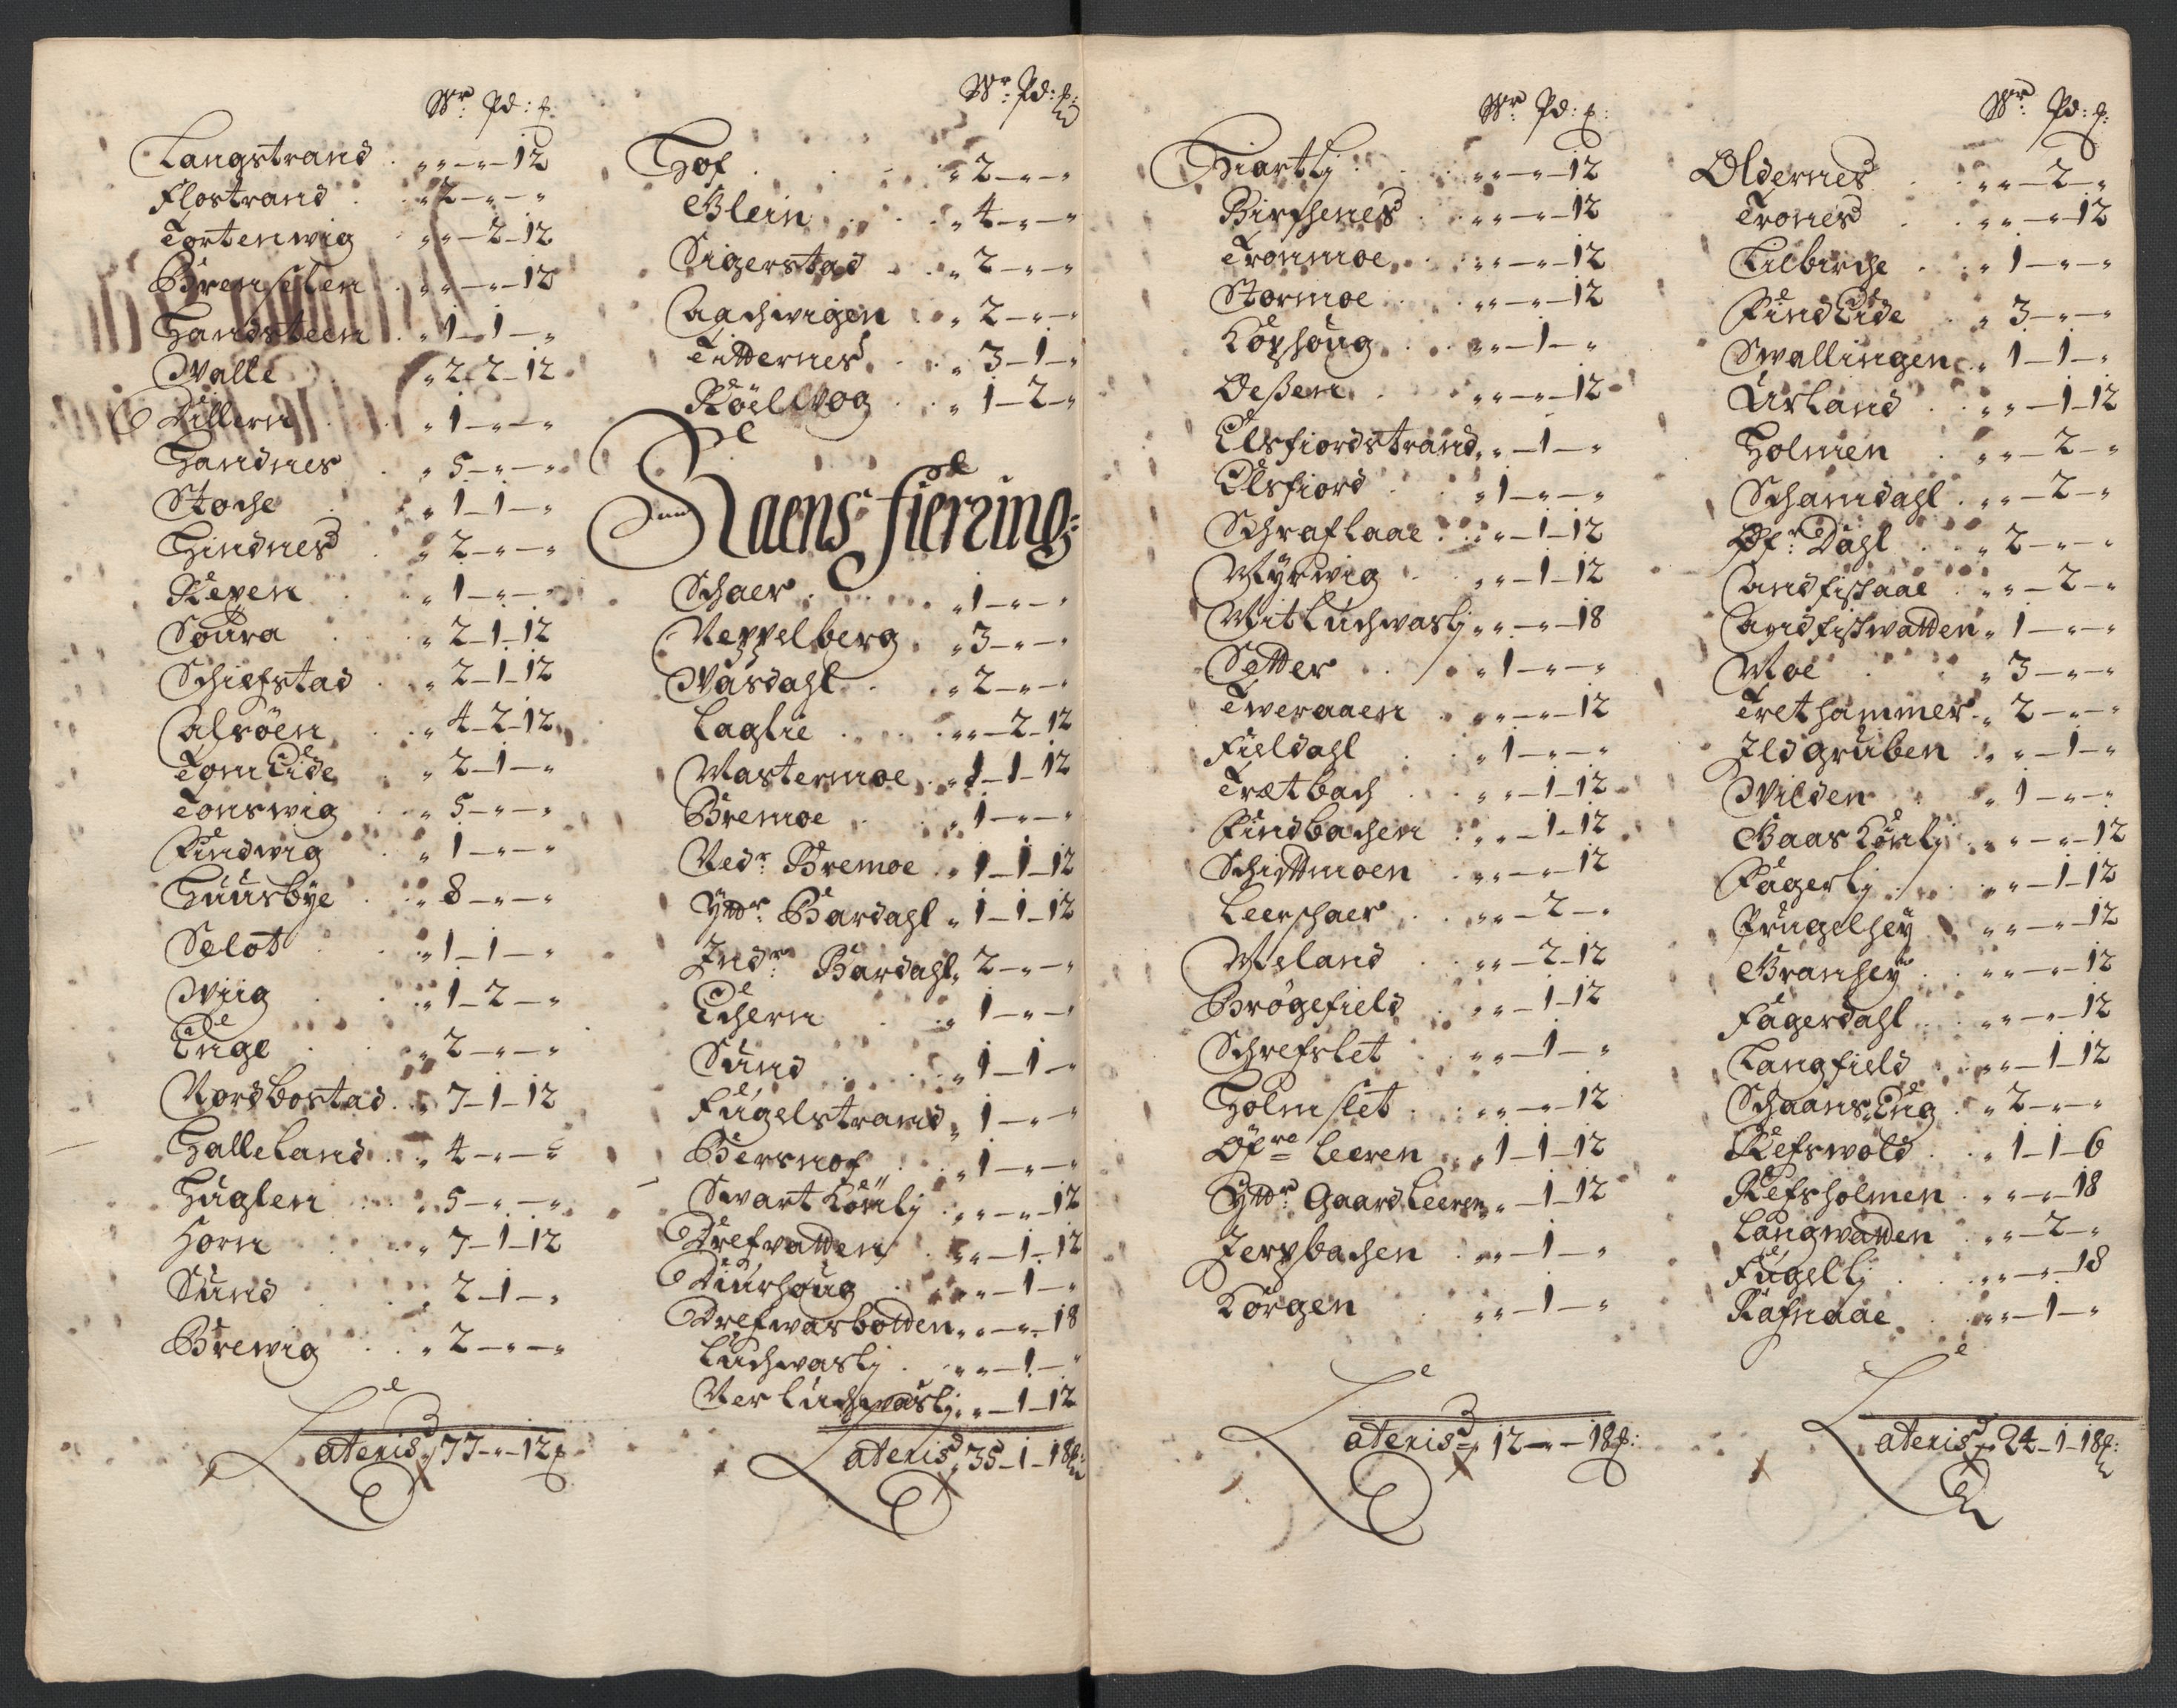 Wr: Pd: ℔:
Langstrand „ „ — „ — 12
Flostrand „ 2 — „ — „
Tortenwig „ „ — 2 — 12
Brenselen „ „ — „ — 12
Handsteen „ 1 — 1 — „
Walle „ 2 — 2 — 12
Dillern „ 1 — „ — „
Handnes „ 5 — „ — „
Stoche „ 1 — 1 — „
Hindnes „ 2 — „ — „
Reven „ 1 — „ — „
Soura „ 2 — 1 — 12
Schiefstad „ 2 — 1 — 12
Alsöen „ 4 — 2 — 12
Tom Eide „ 2 — 1 — „
Tonswig „ 5 — „ — „
Findwig „ 1 — „ — „
Huusbye „ 8 — „ — „
Selot „ 1 — 1 — „
Wiig „ 1 — 2 — „
Enge „ 2 — „ — „
Nordbostad „ 7 — 1 — 12
Halleland „ 4 — „ — „
Huglen „ 5 — „ — „
Horn „ 7 — 1 — 12
Sund „ 2 — 1 — „
Brewig „ 2 — „ — „
Lateris „ 77 — „ — 12 ℔
Wr: Pd: ℔:
Hof „ 2 — „ — „
Blein „ 4 — „ — „
Sigerstad „ 2 — „ — „
Aachwigen „ 2 — „ — „
Titternes „ 3 — 1 — „
Röelwog „ 1 — 2 — „
Raens fierzing:
Schaer „ 1 — „ — „
Neppelberg „ 3 — „ — „
Wasdahl „ 2 — „ — „
Laglie „ „ — 2 — 12
Mastermoe „ 1 — 1 — 12
Bremoe „ 1 — „ — „
Nedr Bremoe „ 1 — 1 — 12
Yttr Bardahl „ 1 — 1 — 12
Indr Bardahl „ 2 — „ — „
Echern „ 1 — „ — „
Sund „ 1 — 1 — „
Fugelstrand „ 1 — „ — „
Bersnof „ 1 — „ — „
Swart Könlj „ „ — „ — 12
Drefvatten „ „ — 1 — 12
Diurhoug „ „ — 1 — „
Drefwasbotten „ „ — „ — 18
Luchwaslj „ „ — 1 — „
Ner Luchwaslj „ „ — 1 — 12
Lateris „ 35 — 1 — 18 ℔:
Wr: Pd: ℔:
Hiartlj „ „ — „ — 12
Birchenes „ „ — „ — 12
Tronmoe „ „ — „ — 12
Stormoe „ „ — „ — 12
Kophoug „ „ — 1 — „
Oeßen „ „ — „ — 12
Elsfiordstrand „ „ — 1 — „
Elsfiord „ 1 — „ — „
Schraflaae „ „ — 1 — 12
Myrwig „ „ — 1 — 12
Mitluchwaslj „ „ — „ — 18
Setter „ 1 — „ — „
Tweraaen „ „ — „ — 12
Fieldahl „ 1 — „ — „
Trætbach „ „ — 1 — 12
Findbachen „ „ — 1 — 12
Schittmoen „ „ — „ — 12
Leerschaer „ „ — 2 — „
Meland „ „ — 2 — 12
Brögefield „ „ — 1 — 12
Schrefslet „ „ — 1 — „
Holmslet „ „ — „ — 12
Öfre Leeren „ 1 — 1 — 12
Yttr Gaard Leeren „ „ — 1 — 12
Jerpbachen „ „ — 1 — „
Korgen „ „ — 1 — „
Lateris „ 12 — „ — 18 ℔:
Wr: Pd: ℔:
Oldernes „ „ — 2 — „
Trones „ „ — „ — 12
Lilbirche „ 1 — „ — „
Find Eide „ 3 — „ — „
Swallingen „ 1 — 1 — „
Urland „ „ — 1 — 12
Holmen „ „ — 2 — „
Schamdahl „ „ — 2 — „
Öfr: Dahl „ 2 — „ — „
Andfiskaae „ „ — 2 — „
Andfiskwatten „ 1 — „ — „
Moe „ 3 — „ — „
Trethammer „ 2 — „ — „
Ildgruben „ „ — 1 — „
Wilden „ 1 — „ — „
Baas Könlj „ „ — „ — 12
Fagerlj „ „ — 1 — 12
Prugelhey „ „ — „ — 12
Branhey „ „ — „ — 12
Fagerdahl „ „ — „ — 12
Langfield „ „ — 1 — 12
Schaans Eng „ 2 — „ — „
Refswold „ 1 — 1 — 6
Refsholmen „ „ — „ — 18
Langwatten „ „ — 2 — „
Fugellj „ „ — „ — 18
Rafnaae „ „ — 1 — „
Lateris „ 24 — 1 — 18 ℔: